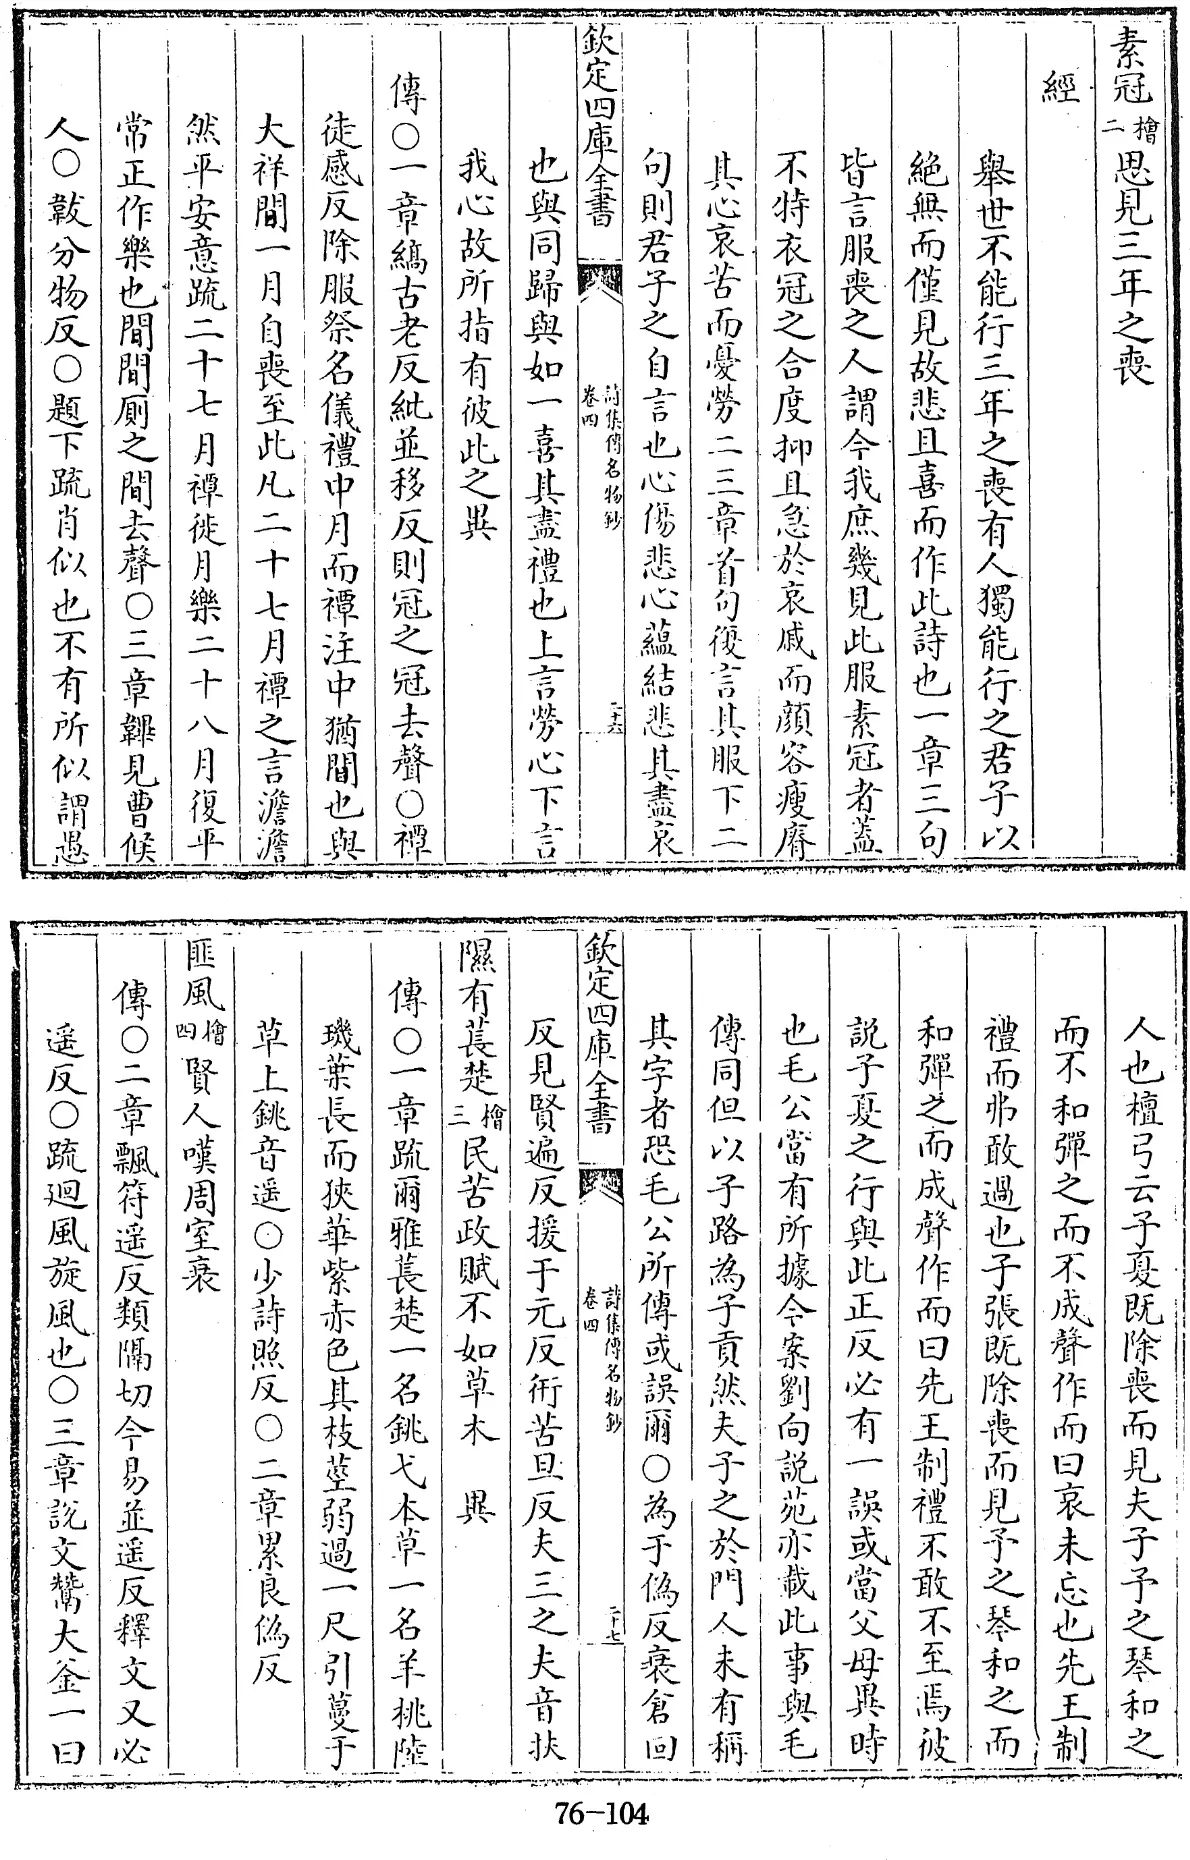 素冠檜二思見三年之喪
經
舉世不能行三年之喪有人獨能行之君子以
絕無而僅見故悲且喜而作此詩也一章三句
皆言服喪之人謂今我庶幾見此服素冠者蓋
不特衣冠之合度抑且急於哀戚而顔容瘦瘠
其心哀苦而憂勞二三章首句復言其服下二
句則君子之自言也心傷悲心蘊結悲其盡哀
欽定四庫全書 詩集傳名物鈔卷四 二十六
也與同歸與如一喜其盡禮也上言勞心下言
我心故所指有彼此之異
傳○一章縞古老反紕並移反則冠之冠去聲○禫
徒感反除服祭名儀禮中月而禫注中猶間也與
大祥間一月自喪至此凡二十七月禫之言澹澹
然平安意疏二十七月禫徙月樂二十八月復平
常正作樂也間間厠之間去聲○三章韠見曹候
人○韍分物反○題下疏肖似也不有所似謂愚
人也檀弓云子夏既除喪而見夫子予之琴和之
而不和彈之而不成聲作而曰哀未忘也先王制
禮而弗敢過也子張既除喪而見予之琴和之而
和彈之而成聲作而曰先王制禮不敢不至焉彼
説子夏之行與此正反必有一誤或當父母異時
也毛公當有所據今案劉向説苑亦載此事與毛
傳同但以子路為子貢然夫子之於門人未有稱
其字者恐毛公所傳或誤爾○為于偽反衰倉回
欽定四庫全書 詩集傳名物鈔卷四 二十七
反見賢遍反援于元反衎苦旦反夫三之夫音扶
隰有萇楚檜三民苦政賦不如草木 興
傳○一章疏爾雅萇楚一名銚弋本草一名羊桃陸
璣葉長而狹華紫赤色其枝莖弱過一尺引蔓于
草上銚音遥○少詩照反○二章累良偽反
匪風檜四賢人嘆周室衰
傳○二章飄符遥反類隔切今易並遥反釋文又必
遥反○疏迴風旋風也○三章説文鬵大釜一曰
76-104